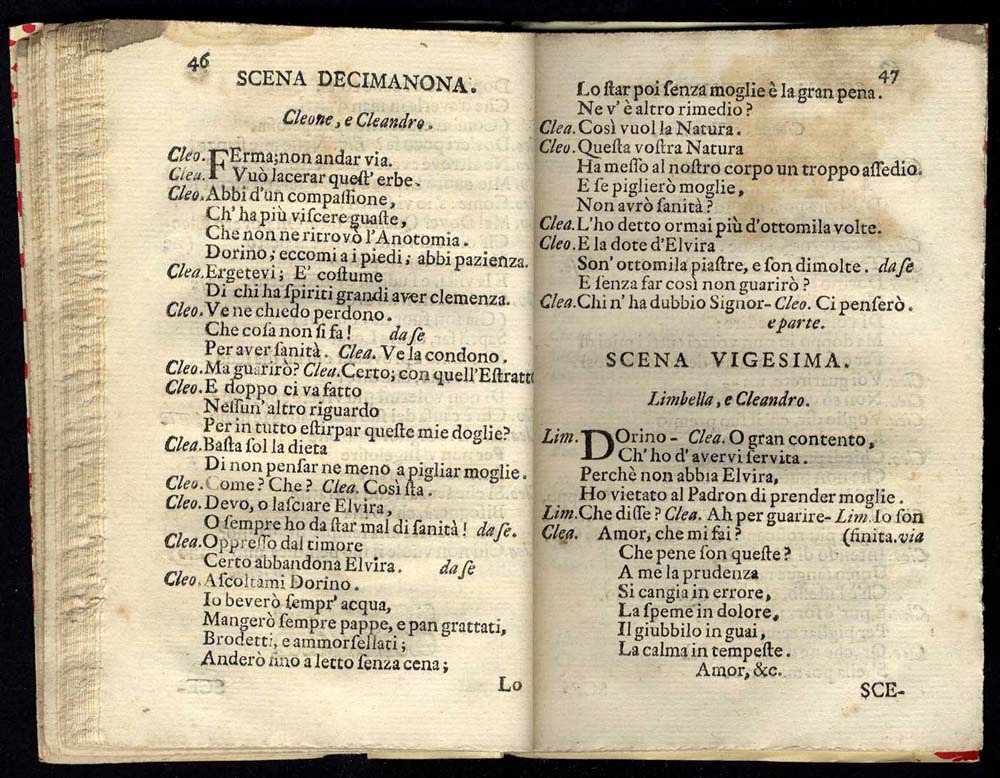 46
SCENA DECIMANONA.
Cleone, e Cleandro.
Cleo. FErma; non andar via.
Clea. Vuò lacerar quest' erbe.
Cleo. Abbi d'un compassione,
Ch' ha più viscere guaste,
Che non ne ritrovò l'Anotomia.
Dorino; eccomi a i piedi; abbi pazienza.
Clea. Ergetevi; E' costume
Di chi ha spiriti grandi aver clemenza.
Cleo. Ve ne chiedo perdono.
Che cosa non si fa! da se
Per aver sanità. Clea. Ve la condono.
Cleo. Ma guarirò? Clea. Certo; con quell' Estratto
Cleo. E doppo ci va fatto
Nessun' altro riguardo
Per in tutto estirpar queste mie doglie?
Clea. Basta sol la dieta
Di non pensar ne meno a pigliar moglie.
Cleo. Come? Che? Clea. Così sta.
Cleo. Devo, o lasciare Elvira,
O sempre ho da star mal di sanità! da se.
Clea. Oppresso dal timore
Certo abbandona Elvira. da se
Cleo. Ascoltami Dorino.
Io beverò sempr' acqua,
Mangerò sempre pappe, e pan grattati,
Brodetti, e ammorsellati;
Anderò sino a letto senza cena;
Lo
47
Lo star poi senza moglie è la gran pena.
Ne v' è altro rimedio?
Clea. Così vuol la Natura.
Cleo. Questa vostra Natura
Ha messo al nostro corpo un troppo assedio.
E se piglierò moglie,
Non avrò sanità?
Clea. L'ho detto ormai più d'ottomila volte.
Cleo. E la dote d'Elvira
Son' ottomila piastre, e son dimolte. da se
E senza far così non guarirò?
Clea. Chi n' ha dubbio Signor- Cleo. Ci penserò.
e parte.
SCENA VIGESIMA.
Limbella, e Cleandro.
Lim. DOrino - Clea. O gran contento,
Ch' ho d' avervi servita.
Perchè non abbia Elvira,
Ho vietato al Padron di prender moglie.
Lim. Che disse? Clea. Ah per guarire- Lim. Io son
Clea. Amor, che mi fai? (finita. via
Che pene son queste?
A me la prudenza
Si cangia in errore,
La speme in dolore,
Il giubbilo in guai,
La calma in tempeste.
Amor, &c.
SCE-